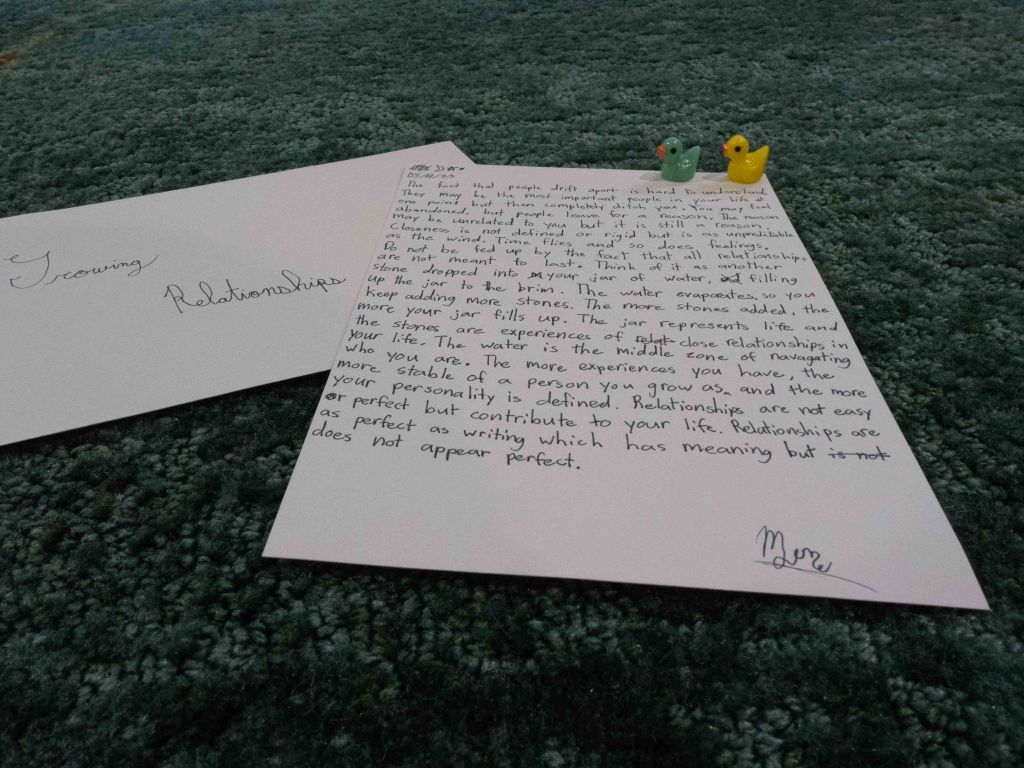 Growing
Relationships
05/02/23
The fact that people drift apart is hard to understand.
They may be the most important people in your life at
one point but then completely ditch you. You may feel
abandoned, but people leave for a reason. The reason
may be unrelated to you but it is still a reason.
Closeness is not defined or rigid but is as unpredictable
as the wind. Time flies and so does feelings.
Do not be fed up by the fact that all relationships
are not meant to last. Think of it as another
stone dropped into your jar of water, filling
up the jar to the brim. The water evaporates, so you
keep adding more stones. The more stones added, the
more your jar fills up. The jar represents life and
the stones are experiences of relat close relationships in
your life. The water is the middle zone of navagating
who you are. The more experiences you have, the
more stable of a person you grow as, and the more
your personality is defined. Relationships are not easy
or perfect but contribute to your life. Relationships are
as perfect as writing which has meaning but is not
does not appear perfect.